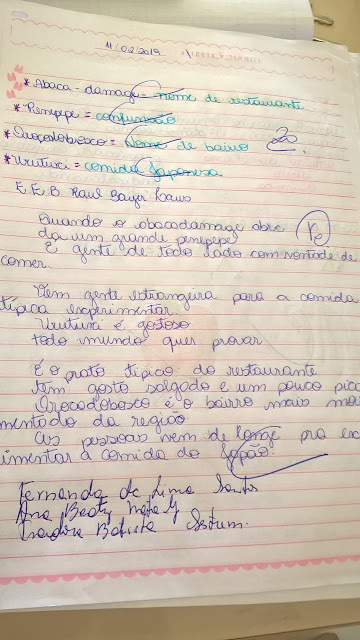 11/02/2019
* Abaca-damage = nome de restaurante
* Penepepe = confunsão
* Oroçodobosco = Nome de bairo
* Urutuvi = comida Japonesa
E. E. B Raul
Quando o abacadamage abre
da um grande penepepe
E gente de todo lado com vontade de
comer.
Vem gente estrangeira para a comida
típica esxprimentar
Urutuvi é gostoso
todo mundo quer provar
É o prato típico do restaurante
tem gosto salgado e um pouco pica
Oroçodobosco é o bairro mais movi
mentado da região
As pessoas vem de longe pra ex
imentar a comida do Japão.
Fernanda de Lima Santos
Ana
Batista